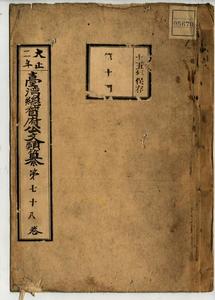 大正
二年
臺灣總督府公文類纂 第七十八卷
十五年保存
05670